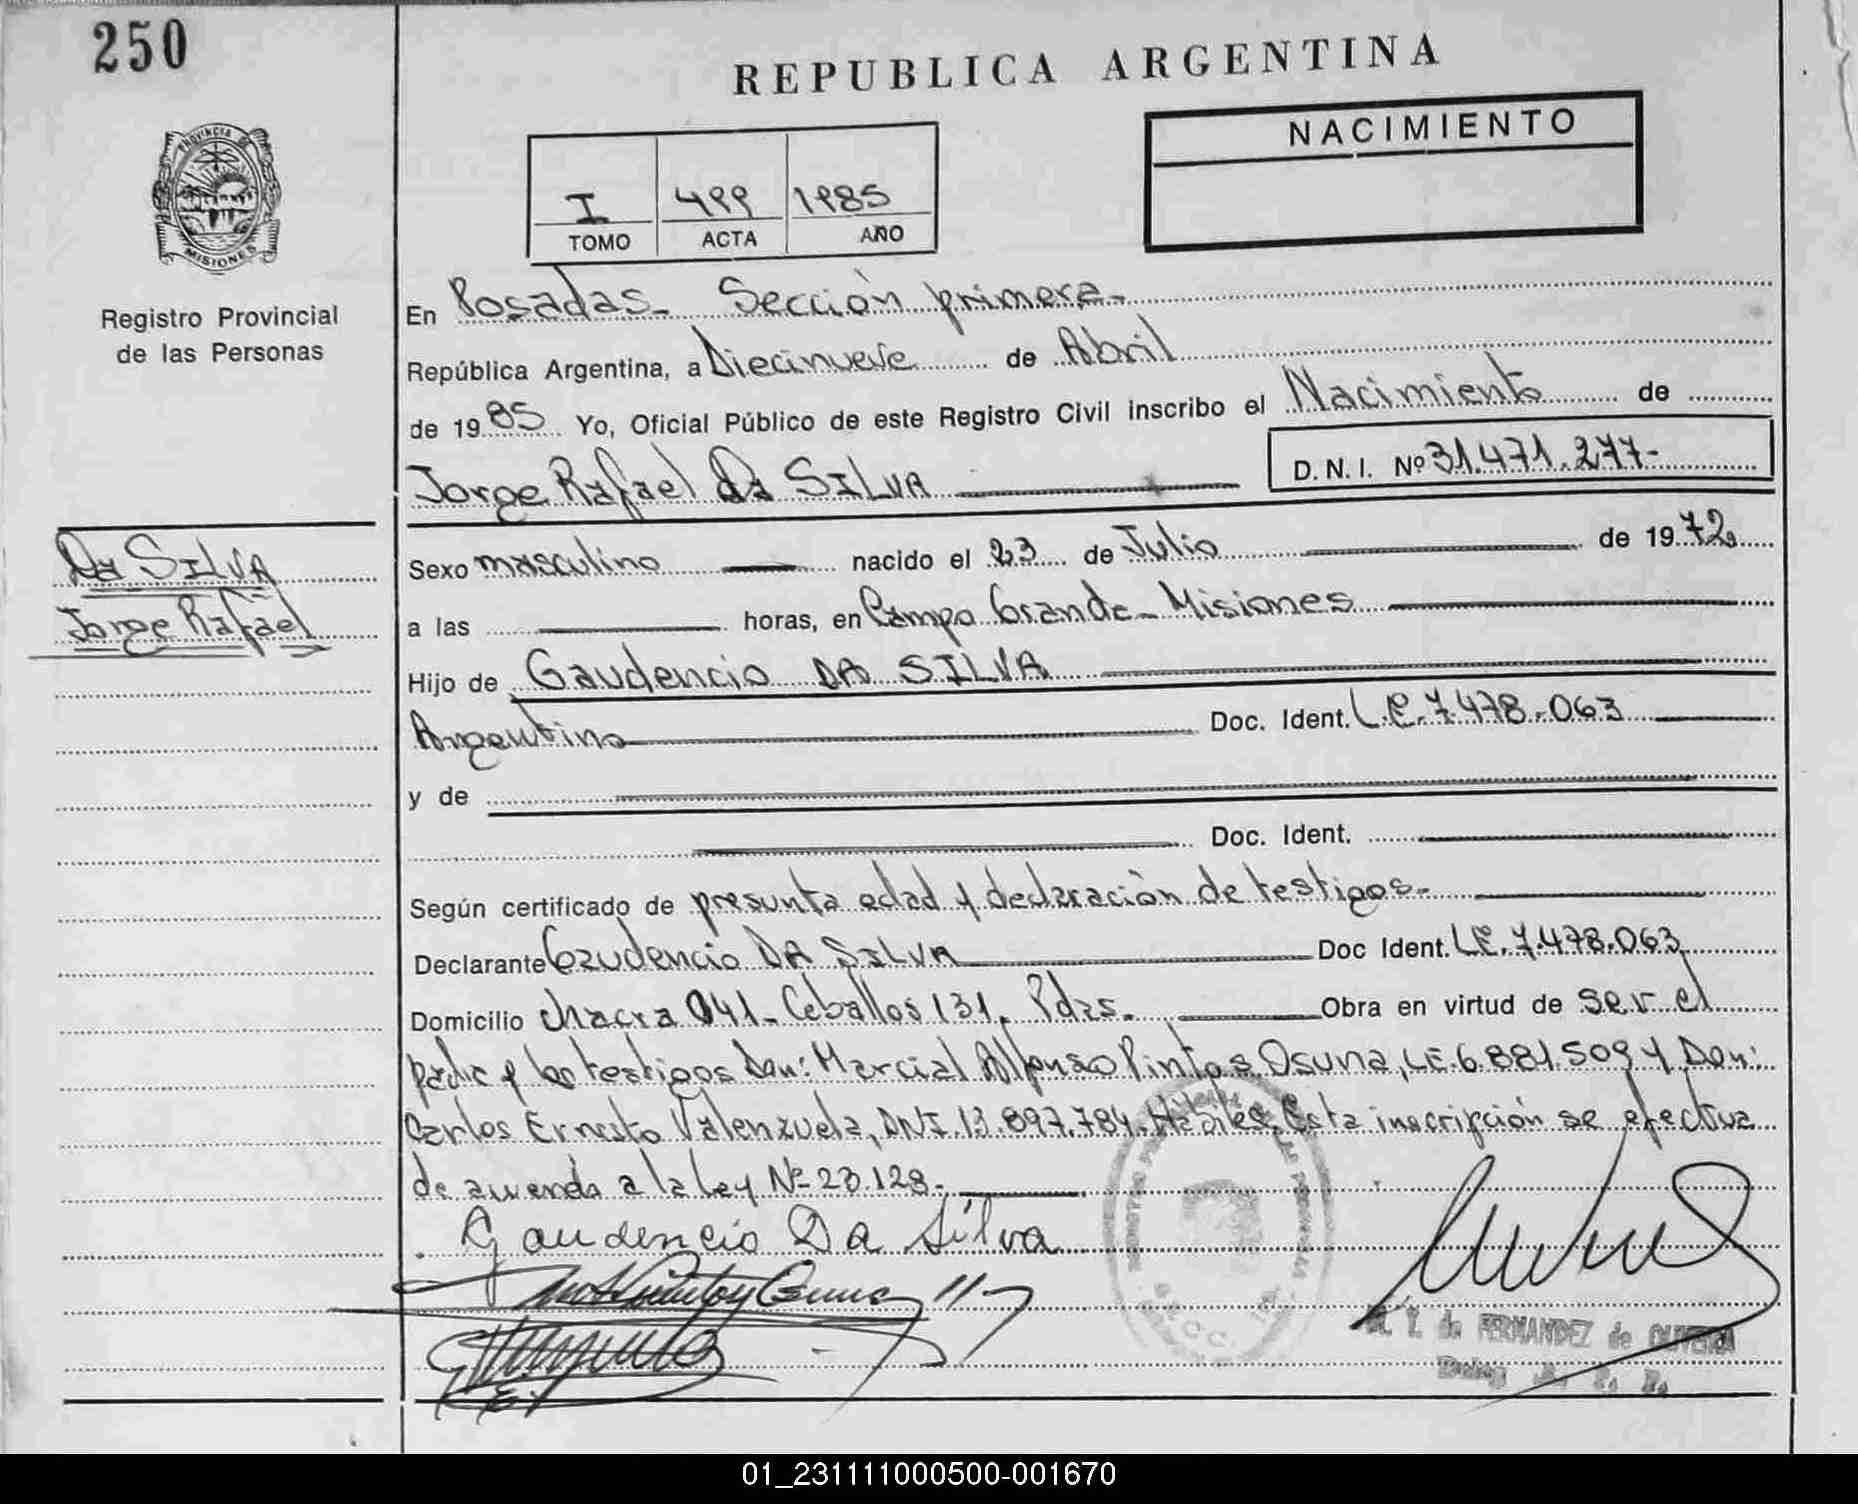 250
REPUBLICA ARGENTINA
NACIMIENTO
I 499 1985
TOMO ACTA AÑO
PROVINCIA DE
MISIONES
Registro Provincial
de las Personas
En Posadas- Sección primera-
República Argentina, a Diecinueve de Abril
de 1985 Yo, Oficial Público de este Registro Civil inscribo el Nacimiento de
Jorge Rafael Da SILVA
D.N.I. Nº 31.471.277-
Da SILVA
Jorge Rafael
Sexo masculino nacido el 23 de Julio de 1972
a las horas, en Campo Grande- Misiones
Hijo de Gaudencio DA SILVA
Argentino Doc. Ident. L.E. 7.478.063
y de
Doc. Ident.
Según certificado de presunta edad y declaración de testigos-
Declarante Gaudencio DA SILVA Doc Ident. LE. 7.478.063
Domicilio chacra 041- Ceballos 131. Pdas. Obra en virtud de ser el
padre y los testigos Don: Marcial Alfonso Pintos Osuna, LE. 6.881.509 y Don:
Carlos Ernesto Valenzuela, DNI. 13.897.784. Hábiles. Esta inscripción se efectua
de acuerdo a la ley Nº 23.128.
Gaudencio Da Silva
de FERNANDEZ de OLIVEIRA
01_231111000500-001670